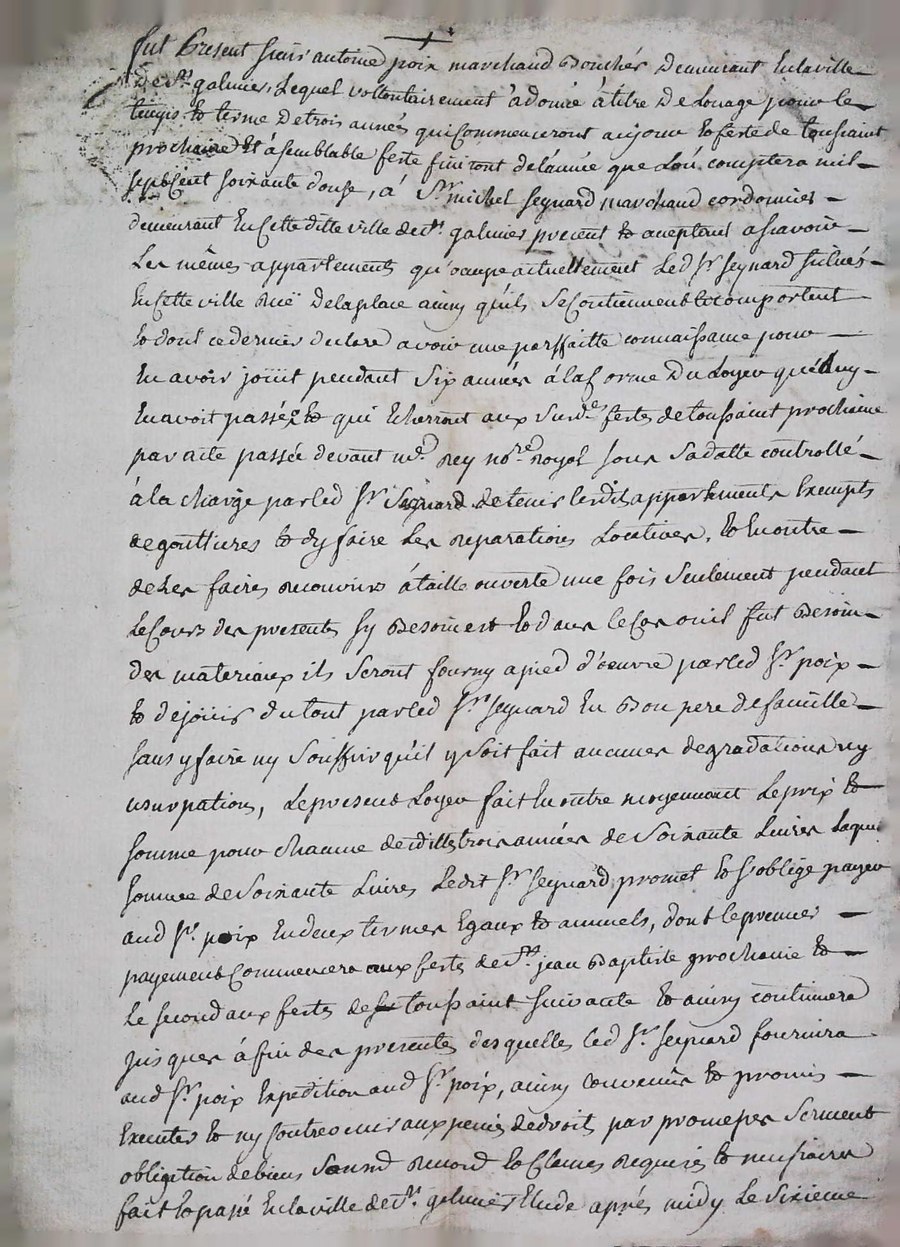 fut Present sieur antoine poix marchand Boucher Demeurant En la ville
De st galmier, Lequel vollontairement à donné à titre De Louage pour le
temps et terme De trois années qui Commenceront au jour et feste de toussaint
prochaine Et à semblable feste finiront de l'année que L'on comptera mil
sept Cent soixante douze, à Sr. michel seynard marchand cordonnier
demeurant En Cette ditte ville de st. galmier present et aceptant a sçavoir
Les mêmes appartements qu'occupe actuellement Led Sr. seynard situés
En Cette ville Ruë De la place ainsy qu'ils se Contiennent et comportent
et dont ce dernier declare avoir une parffaitte connaissance pour
En avoir joüit pendant Six années à la forme Du Loyer qué
En avoit passé et qui Echerront aux susd. festes de toussaint prochaine
par acte passé devant me. Rey nore. royal sous sa datte controllé
à la charge par led Sr. Seynard de tenir lesdits appartements Exempts
de gouttieres et d'y faire Les reparations Locatives, et En outre
de Les faires recouvrir à taille ouverte une fois seulement pendant
Le Cours des presentes sy Besoin est et dans le Cas ou il fut Besoin
Des materiaux ils seront fourny a pied d'oeuvre par led Sr. poix
et de joüir du tout par led Sr. seynard En Bon pere de famille
sans y faire ny souffrir qu'il y soit fait aucunes degradations ny
usurpations, Le present Loyer fait En outre moyennant Le prix et
somme pour chacune desdittes trois années de soixante Livres Laquelle
somme de soixante Livres Ledit Sr. seynard promet et s'oblige payer
aud Sr. poix En deux termes Egaux et annuels, dont le premier
payement Commencera aux festes de st. jean Baptiste prochaine et
Le second aux festes de toussaint suivante et ainsy continuera
jusques à fin des presentes desquelles led Sr. seynard fournira
aud Sr. poix Expedition aud Sr. poix, ainsy convenu et promis
Executer et ny Contrevenir aux peines de droits par promesses serment
obligation de biens renond et Clauses requises et necessaires
fait et passé En la ville de st. galmier Etude aprés midy Le Sixieme